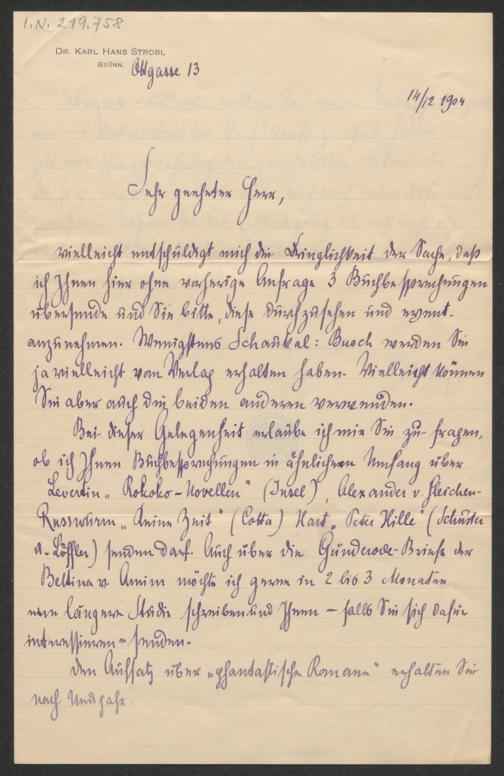 I.N. 219.758
DR. KARL HANS STROBL
BRÜNN,
Ottgasse 13
14/12 1904
Sehr geehrter Herr,
vielleicht entschuldigt mich die Dringlichkeit der Sache, daß
ich Ihnen hier ohne vorherige Anfrage 3 Buchbesprechungen
übersende und Sie bitte, diese durchzusehen und event.
anzunehmen. Wenigstens Schaukal: Busch werden Sie
ja vielleicht vom Verlag erhalten haben. Vielleicht können
Sie aber auch die beiden anderen verwenden.
Bei dieser Gelegenheit erlaube ich mir Sie zu fragen,
ob ich Ihnen Buchbesprechungen in ähnlichem Umfang über
Levertin „Rokoko-Novellen" (Insel), Alexander v. Gleichen-
Russwurm „Keine Zeit" (Cotta) Hart „Peter Hille" (Schuster
u. Löffler) senden darf. Auch über die Günderode-Briefe der
Bettina v. Arnim möchte ich gerne in 2 bis 3 Monaten
eine längere Studie schreiben und Ihnen – falls Sie sich dafür
interessieren – senden.
Den Aufsatz über „phantastische Romane" erhalten Sie
nach Neujahr.